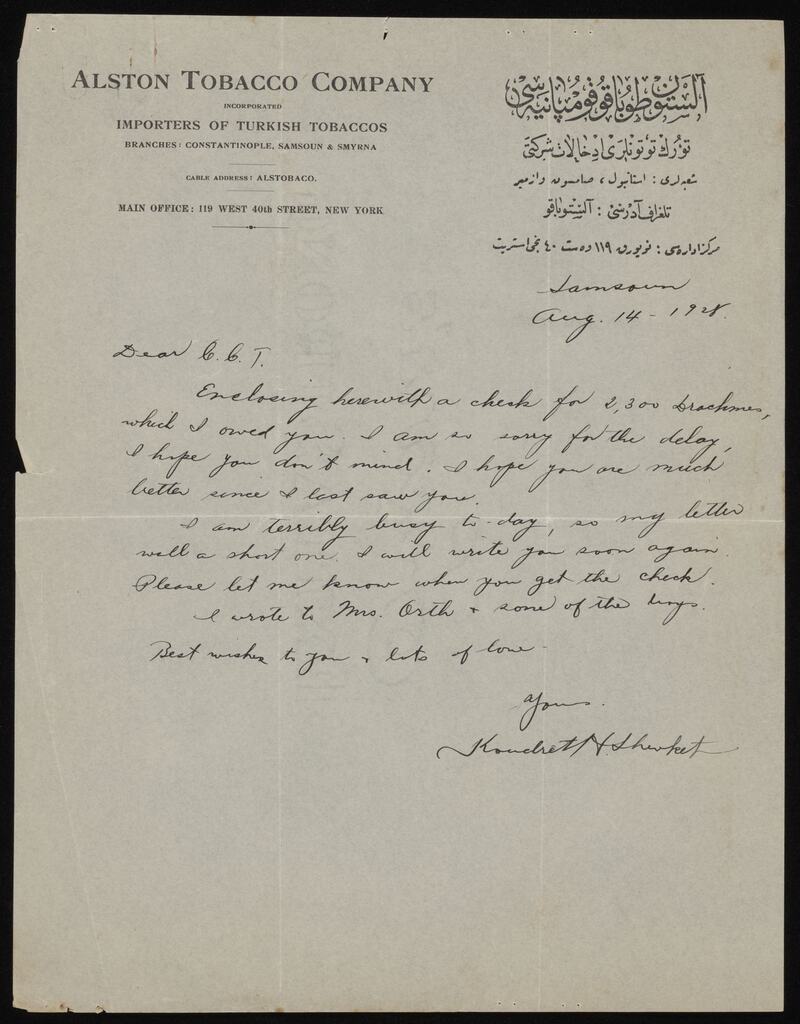 ALSTON TOBACCO COMPANY
INCORPORATED
IMPORTERS OF TURKISH TOBACCOS
BRANCHES: CONSTANTINOPLE, SAMSOUN & SMYRNA
CABLE ADDRESS: ALSTOBACO.
MAIN OFFICE: 119 WEST 40th STREET, NEW YORK
آلستون طوباقو قومپانیه سی
تورك توتونلری ادخالات شركتی
شعبه لری : استانبول ، صامسون و ازمیر
تلغراف آدرسی : آلستوباقو
مركز اداره سی : نویورق ١١٩ وه ست ٤٠ نجی استریت
Samsoun
Aug. 14 - 1928.
Dear C. C. T.
Enclosing herewith a check for 2,300 Drachmes,
which I owed you. I am so sorry for the delay,
I hope you don't mind. I hope you are much
better since I last saw you.
I am terribly busy to-day, so my letter
will a short one. I will write you soon again.
Please let me know when you get the check.
I wrote to Mrs. Orth & some of the boys.
Best wishes to you & lots of love -
Yours.
Koudrett H. Shevket